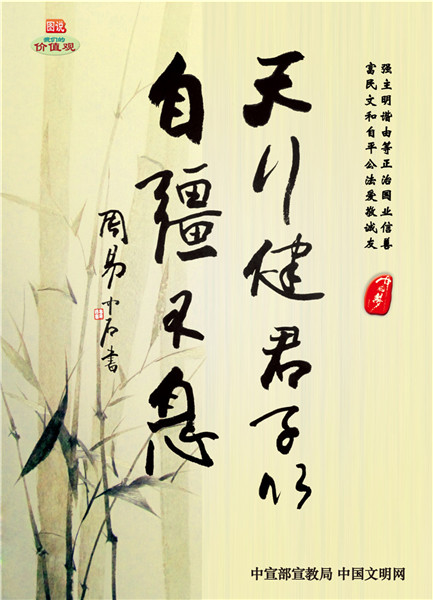 图说
我们的
价值观
富强
民主
文明
和谐
自由
平等
公正
法治
爱国
敬业
诚信
友善
中国梦
天行健君子以
自疆不息
周易中石書
中宣部宣教局 中国文明网